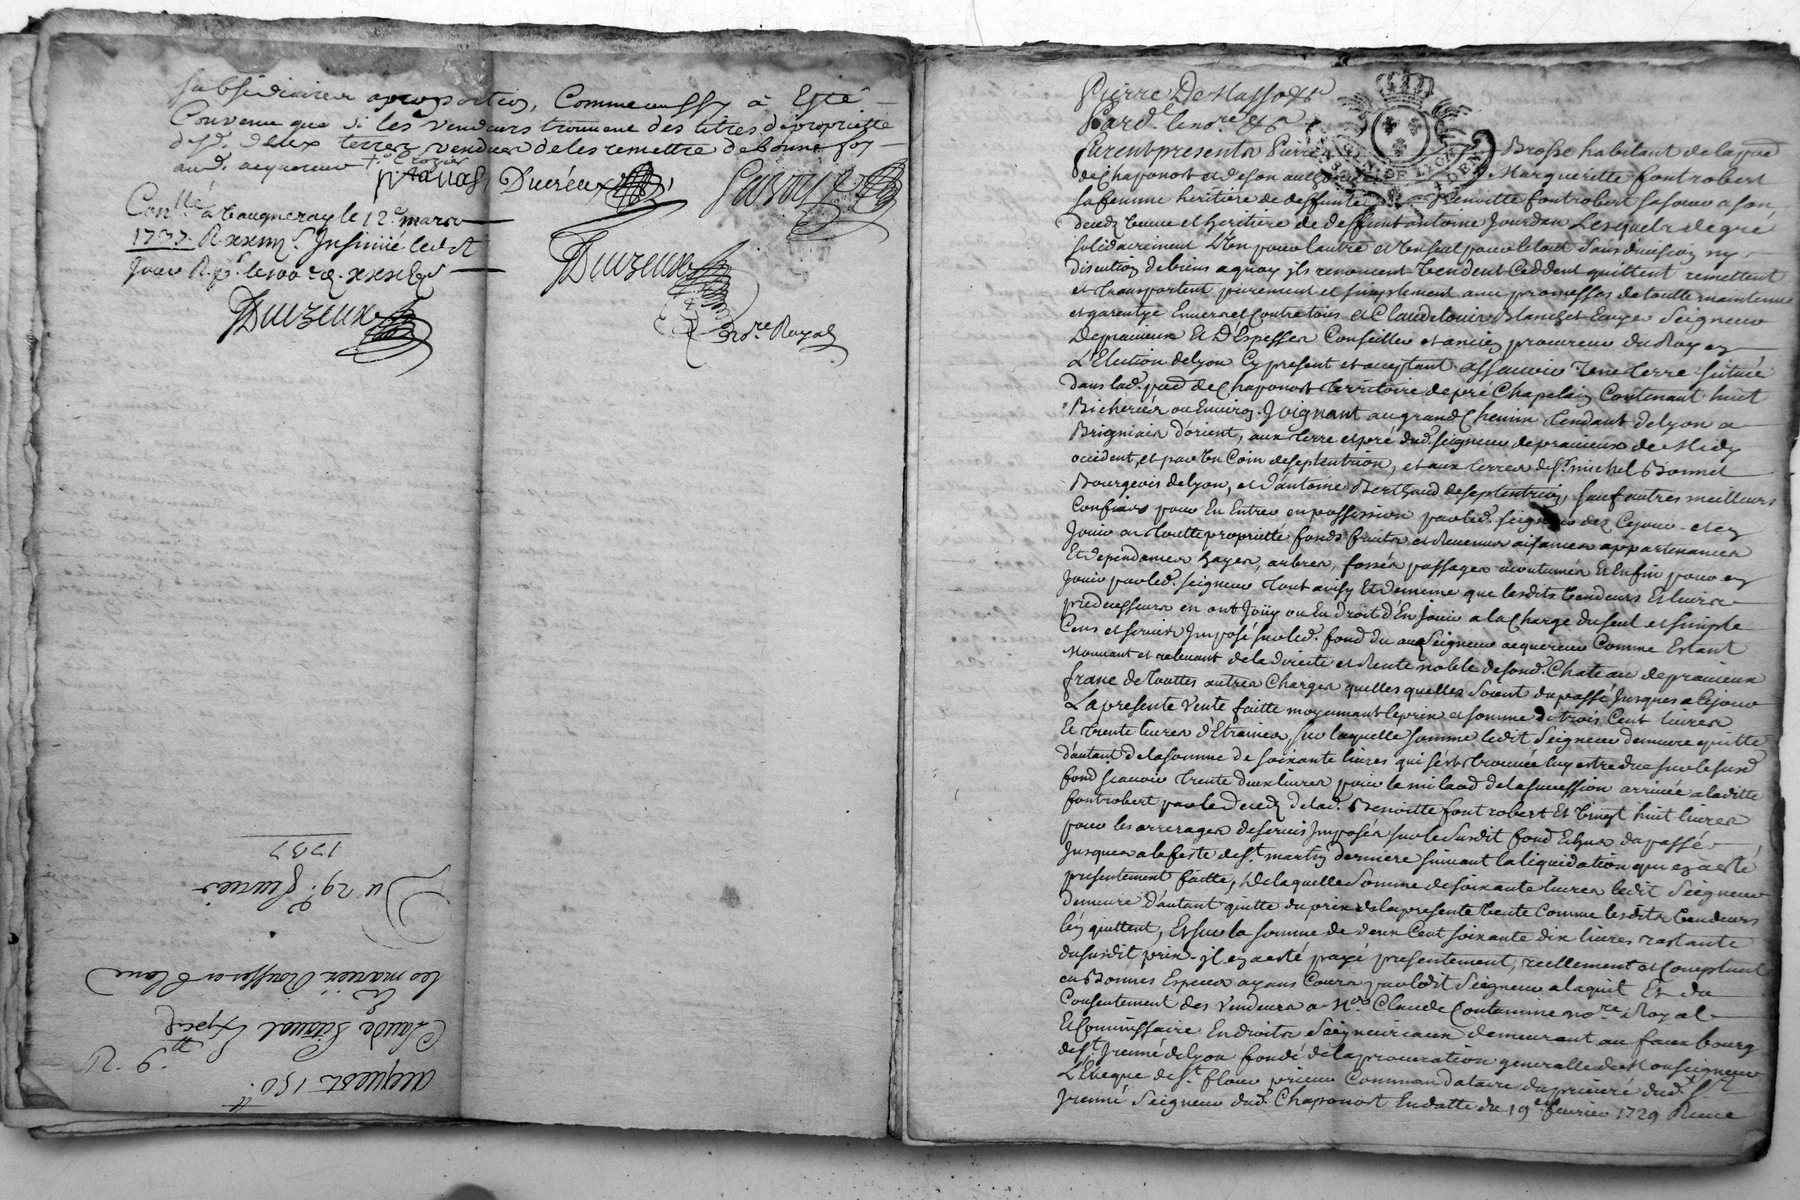 subsidiaires a proportion, Comme aussy a Esté
Convenu que si les vendeurs trouvent des titres de proprieté
desd. deux terres vendues de les remettre de bonne foy
aud. acquereur
Ducreux
Conllé a Vaugneray le 12e mars
1737. R
Jour R
Ducreux
Ducreux
Nore Royal
acquest 150tt
Claude
Et
les mariés
Du 29e fevrier
1737
Pierre De
Pard. le nore
Furent presents Pierre Brosse habitant de la parr
de Chaponost et de son authorité Margueritte fontrobert
sa femme heritiere de deffunte Benoitte fontrobert sa soeur a son
deceds veuve et heritiere de deffunt antoine Jourdan Lesquels de gré
solidairement L'un pour l'autre et un seul pour le tout sans division ny
discution de biens a quoy ils renoncent vendent Ceddent quittent remettent
et transportent purement et simplement avec promesses de toutte maintenue
et garentye Envers et contre tous a Claude louis Seigneur
De pravieux Et D'Espesses Conseiller et ancien procureur du Roy en
L'Election de lyon Cy present et acceptant assavoir Une terre située
dans lad. parr de Chaponost territoire de pré Chapelain Contenant huit
Bicherées ou Environ Joignant au grand Chemin tendant de lyon a
Brigniais d'orient, aux terre et pré dud. seigneur de pravieux de Midy
occident, et par un Coin de septentrion, et aux terres de sr michel Bonnet
Bourgeois de lyon, et d'antoine Berthaud de septentrion, sauf autres meilleurs
Confins pour En Entrer en possession par led. seigneur dez Cejour et en
Jouir en toutte proprietté fonds fruits et Revenus aisances appartenances
Et dependances hayes, arbres, fossés passages acoutumés Et Enfin pour en
Jouir par led. seigneur tout ainsy Et de meme que lesdits Vendeurs Et leurs
predecesseurs en ont Joüy ou Eu droit d'En Jouir a la Charge du seul et simple
Cens et servis Imposé sur led. fond du aud Seigneur acquereur Comme Estant
Mouvant et relevant de la directe et Rente noble de sond. Chateau de pravieux
franc de touttes autres Charges quelles quelles soient du passé Jusques a Cejour
La presente Vente faitte moyennant le prix et somme de trois Cent livres
Et trente livres d'Etraines, sur laquelle somme ledit Seigneur demeure quitte
d'autant de la somme de soixante livres qui s'est trouvée luy estre due sur le susd
fond scavoir trente deux livres pour le mi laod de la succession arrivée a laditte
fontrobert par le Deceds de lad. Benoitte fontrobert Et Vingt huit livres
pour les arrerages de servis Imposés sur le susdit fond Echus du passé
Jusques a la feste de st martin derniere suivant la liquidation qui en a esté
presentement faitte, De laquelle somme de soixante livres ledit Seigneur
demeure d'autant quitte du prix de la presente Vente Comme lesdits Vendeurs
l'en quittent, Et sur la somme de deux Cent soixante dix livres restante
du susdit prix il en a esté payé presentement, reellement et Comptant
en Bonnes Especes ayans Cours par ledit Seigneur a l'aquit Et du
Consentement des Vendeurs a Mre Claude Contamine nore Royal
Et Commissaire En droits Seigneuriaux demeurant au faux bourg
de st Irenné de lyon fondé de la procuration generalle de Monseigneur
L'Eveque de st flour prieur Commandataire du prieuré dud. st
Irenné Seigneur dud. Chaponost En datte du 19e fevrier 1729 Reçue